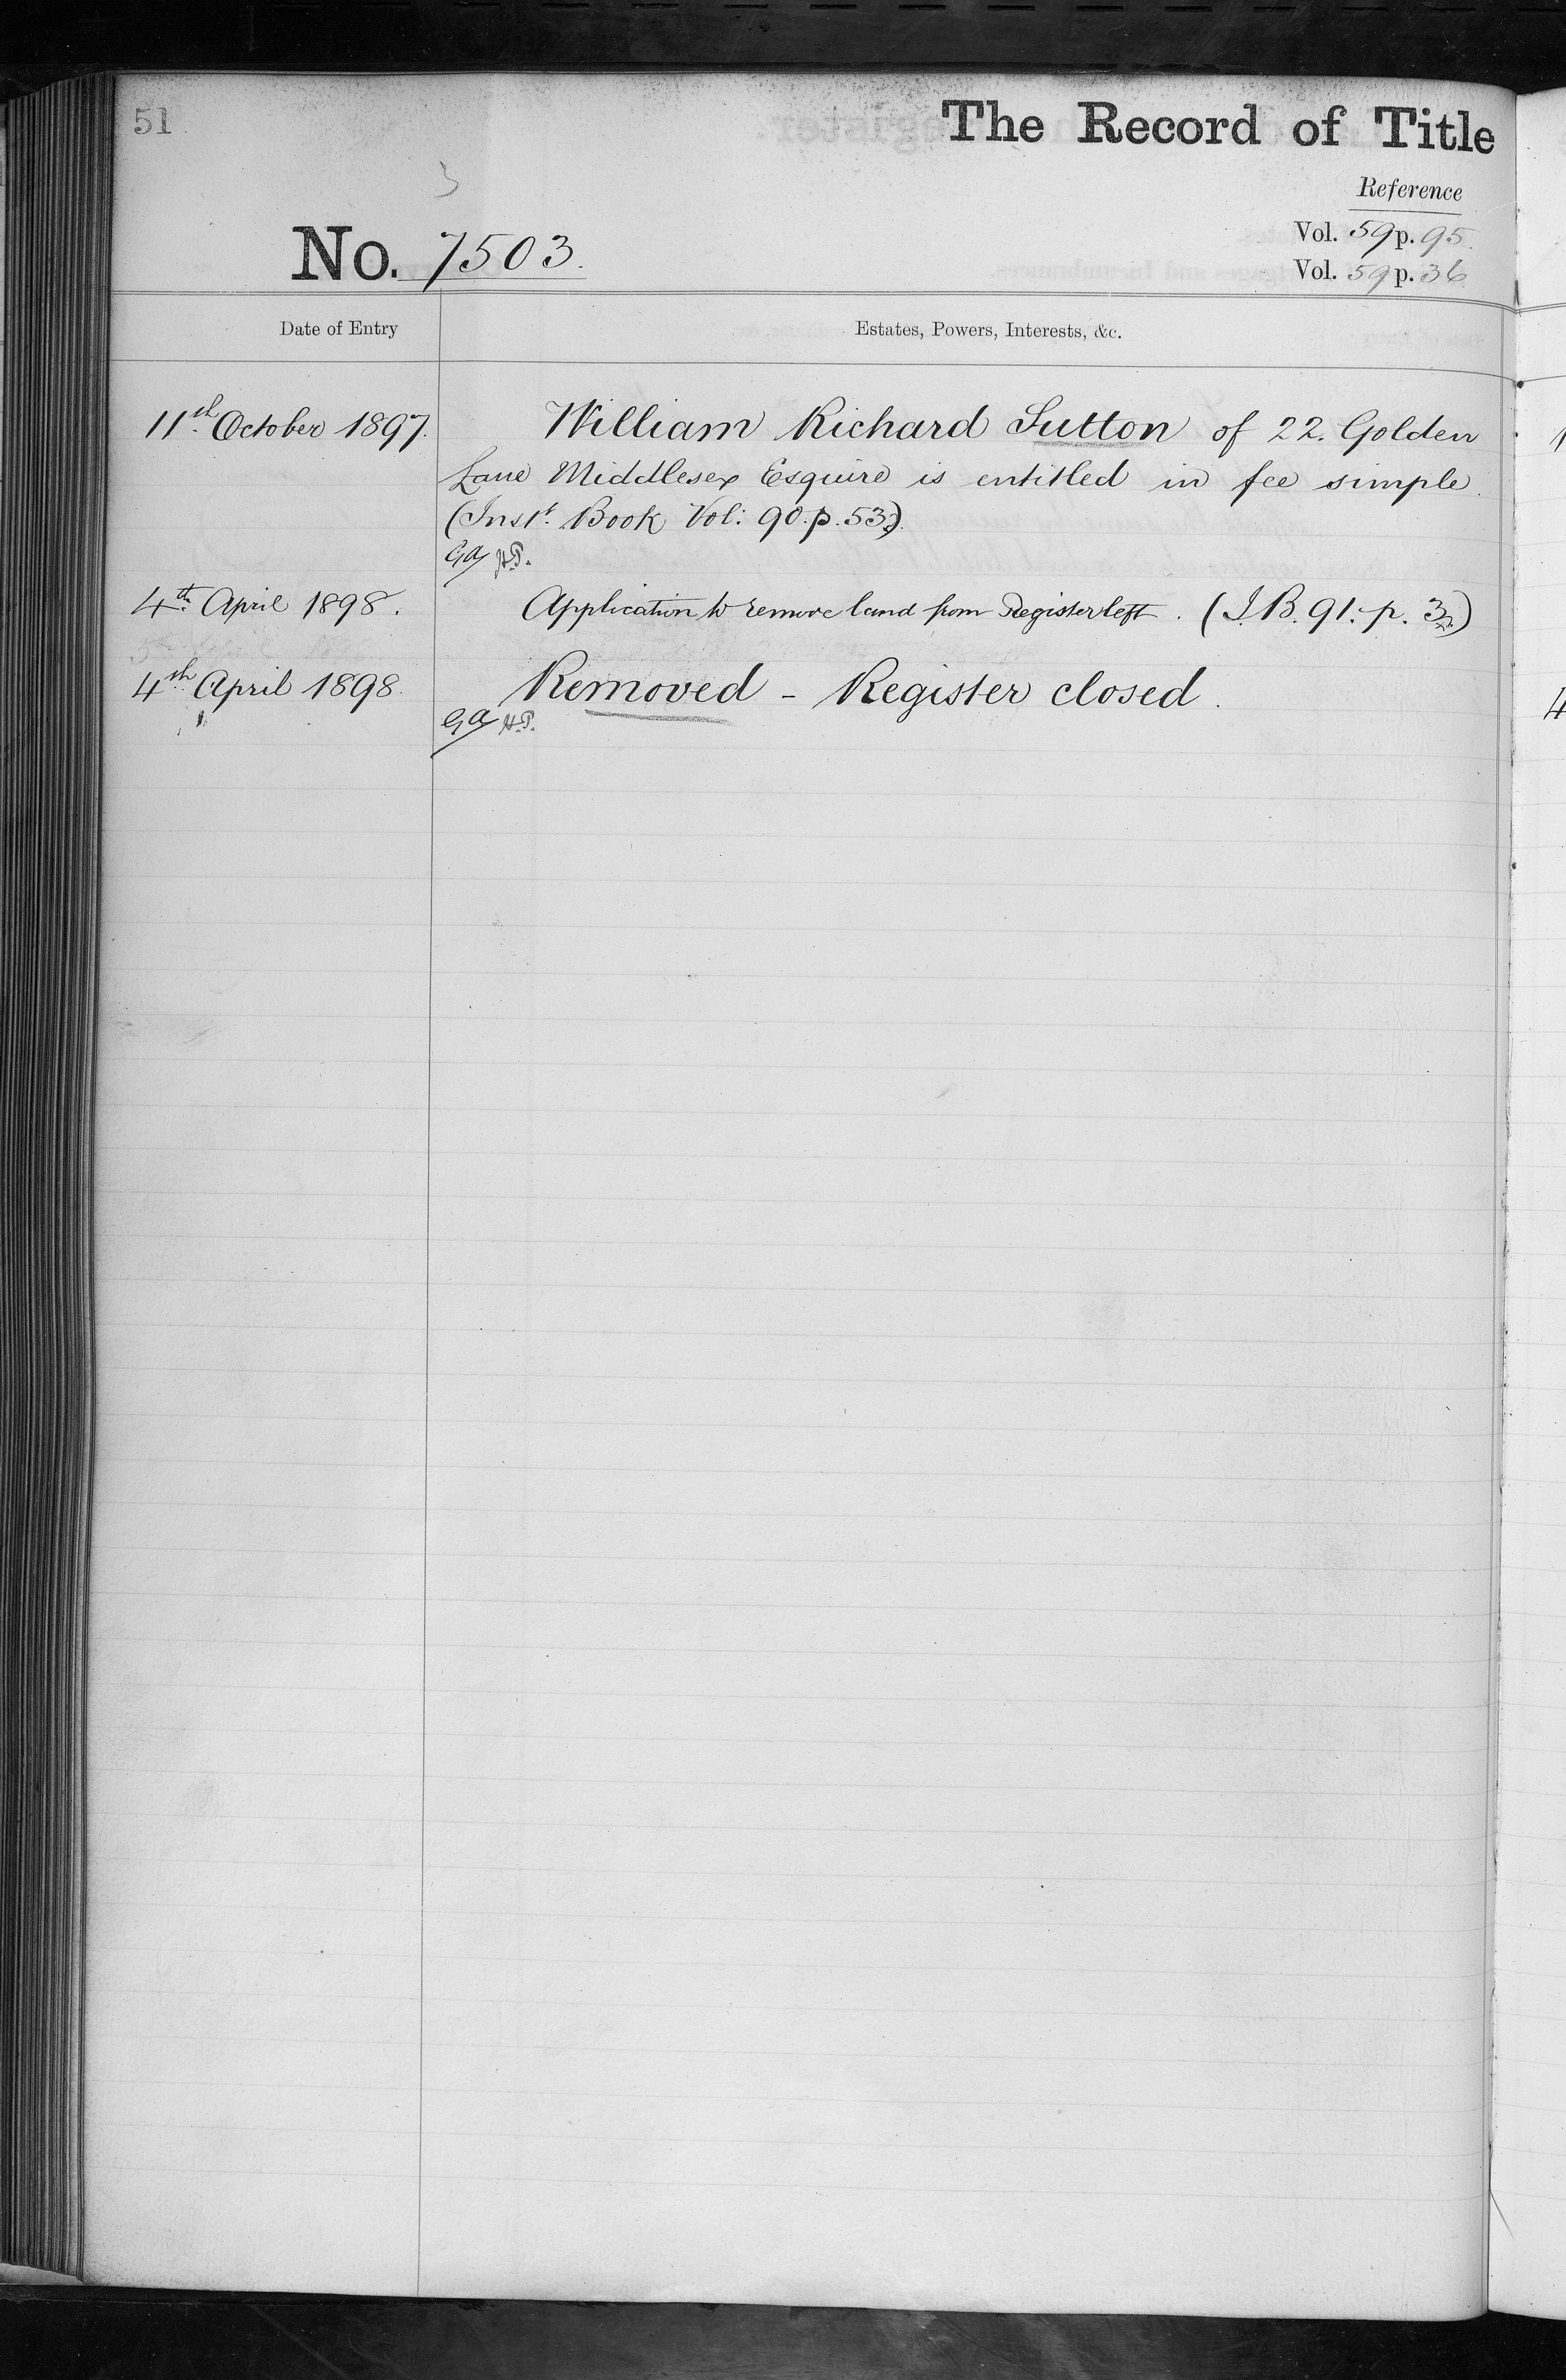 51
The Record of Title
Reference
Vol. 59 p. 95.
No. 7503.
Vol. 59 p. 36
Date of Entry
Estates, Powers, Interests, &c.
11th October 1897.
William Richard Sutton of 22. Golden
Lane Middlesex Esquire is entitled in fee simple.
(Inst. Book Vol: 90. p. 53).
GA H.P.
4th April 1898.
Application to remove land from Register left. (I.B. 91. p. 3)
4th April 1898.
Removed - Register closed.
GA H.P.